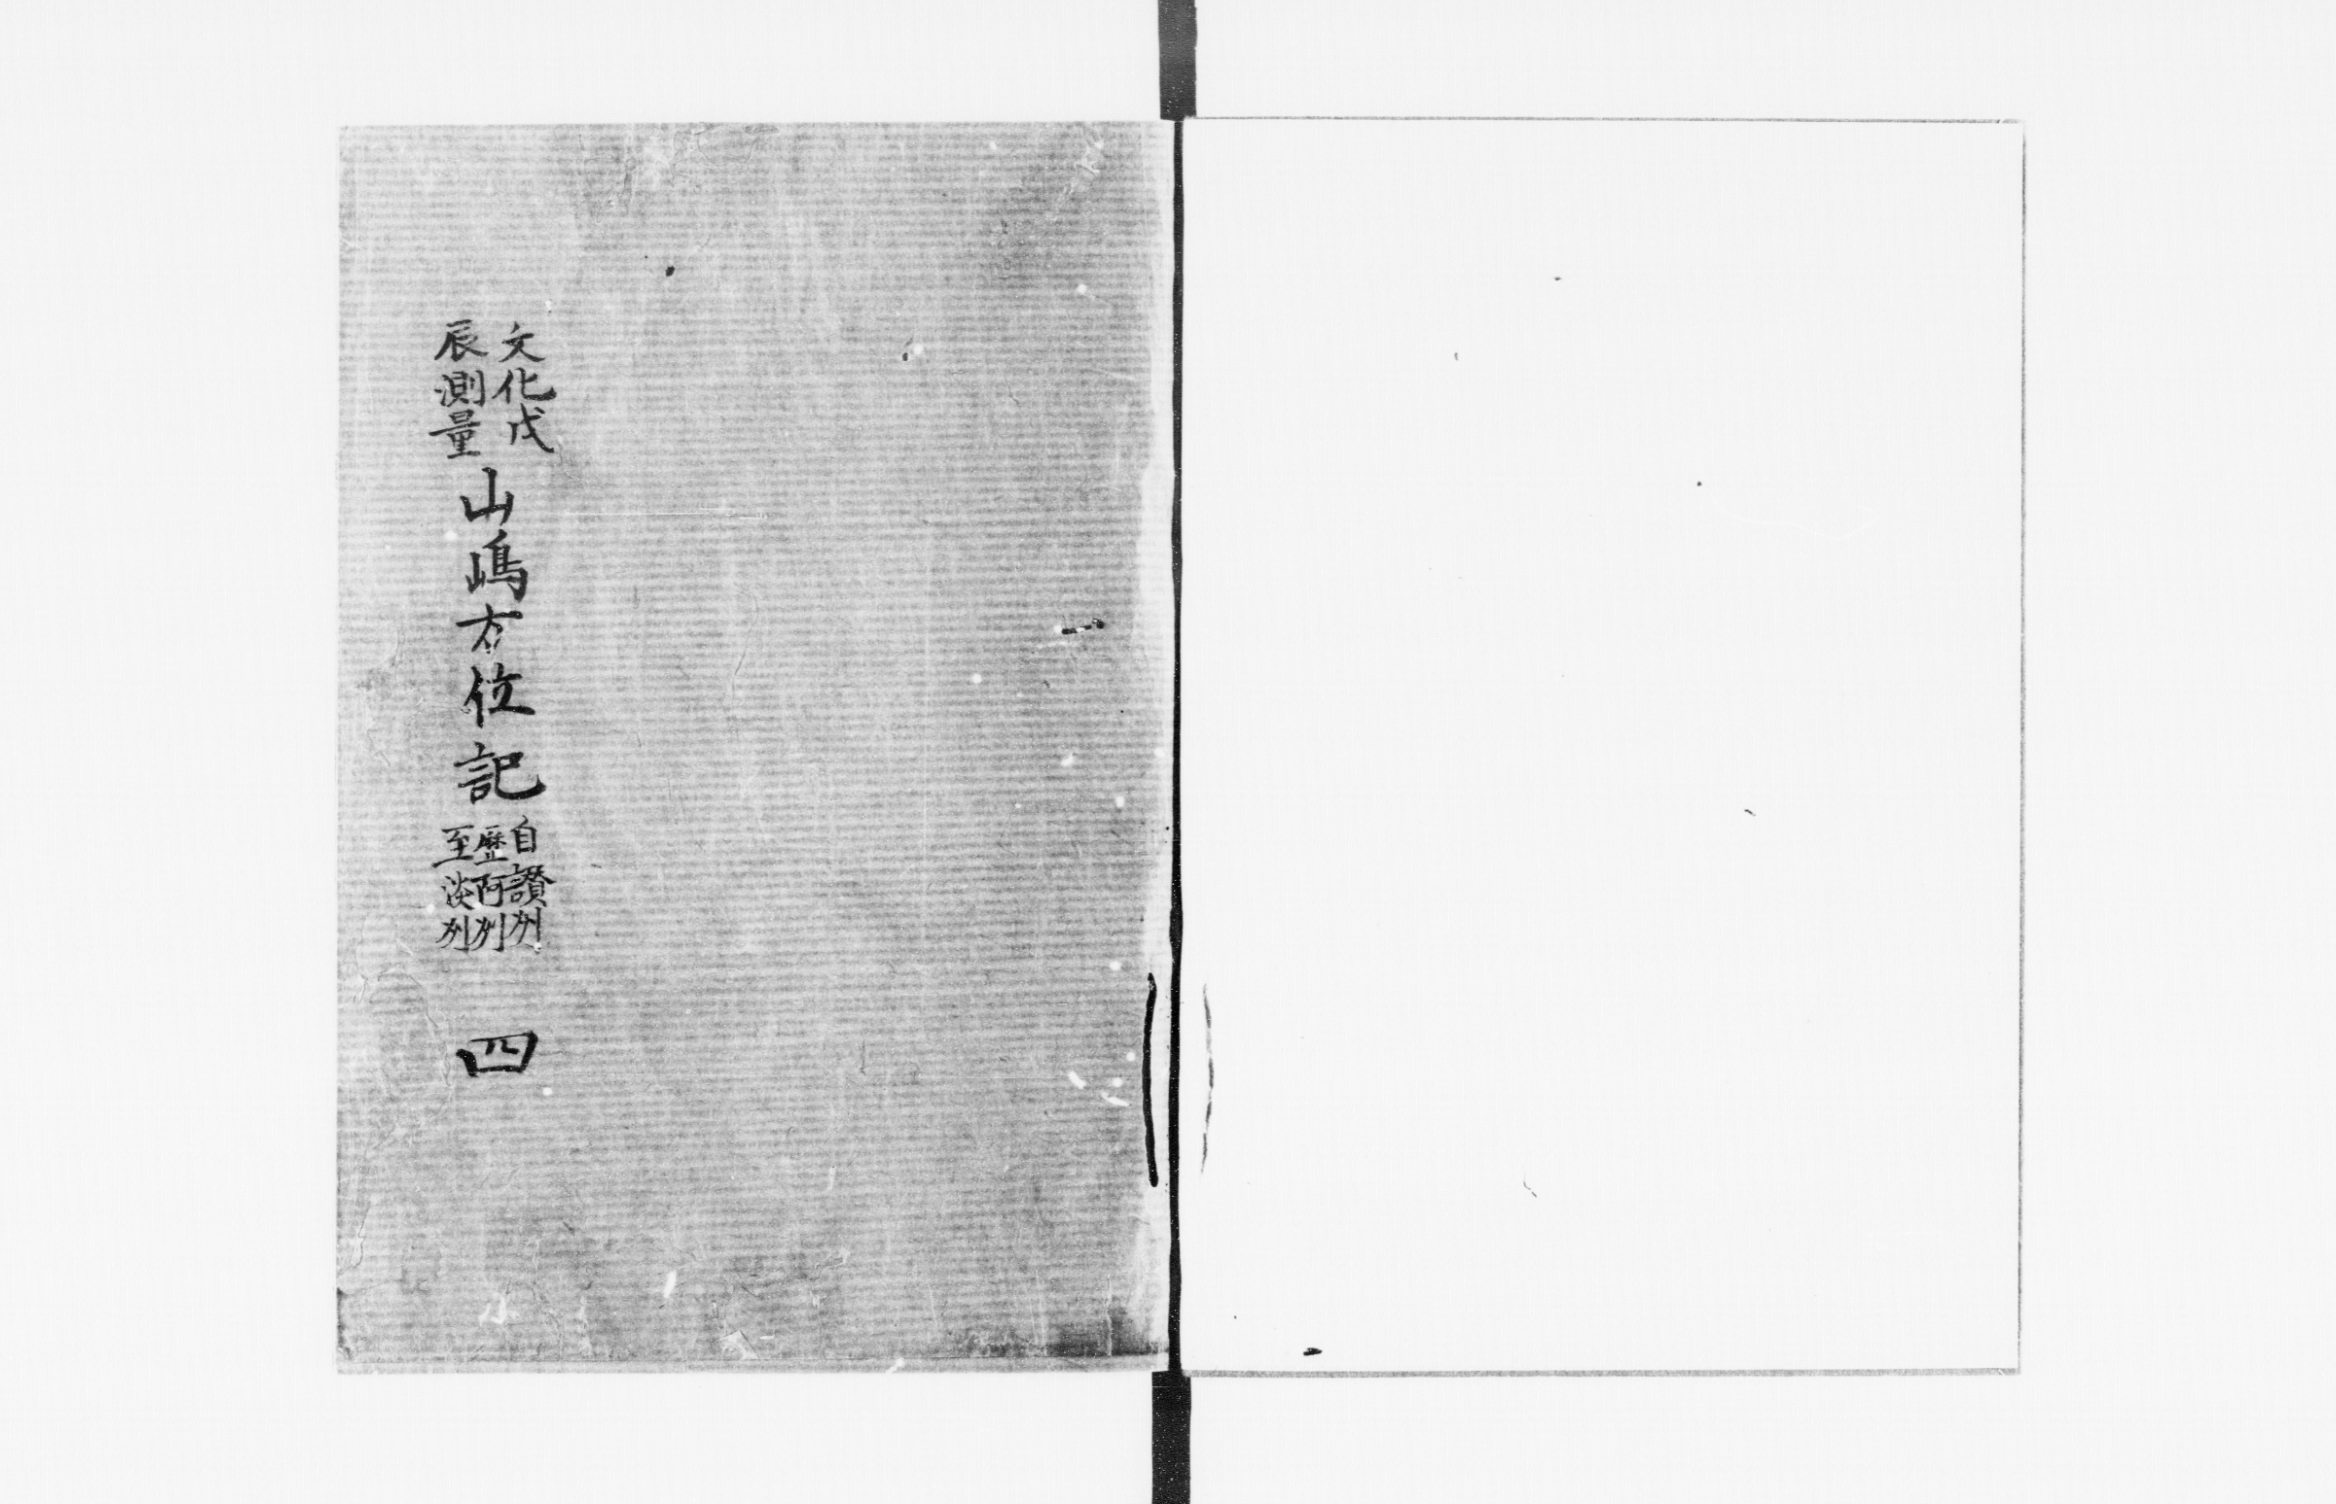 文化戊
辰測量
山嶋方位記
自讃州
歴阿州
至淡州
四